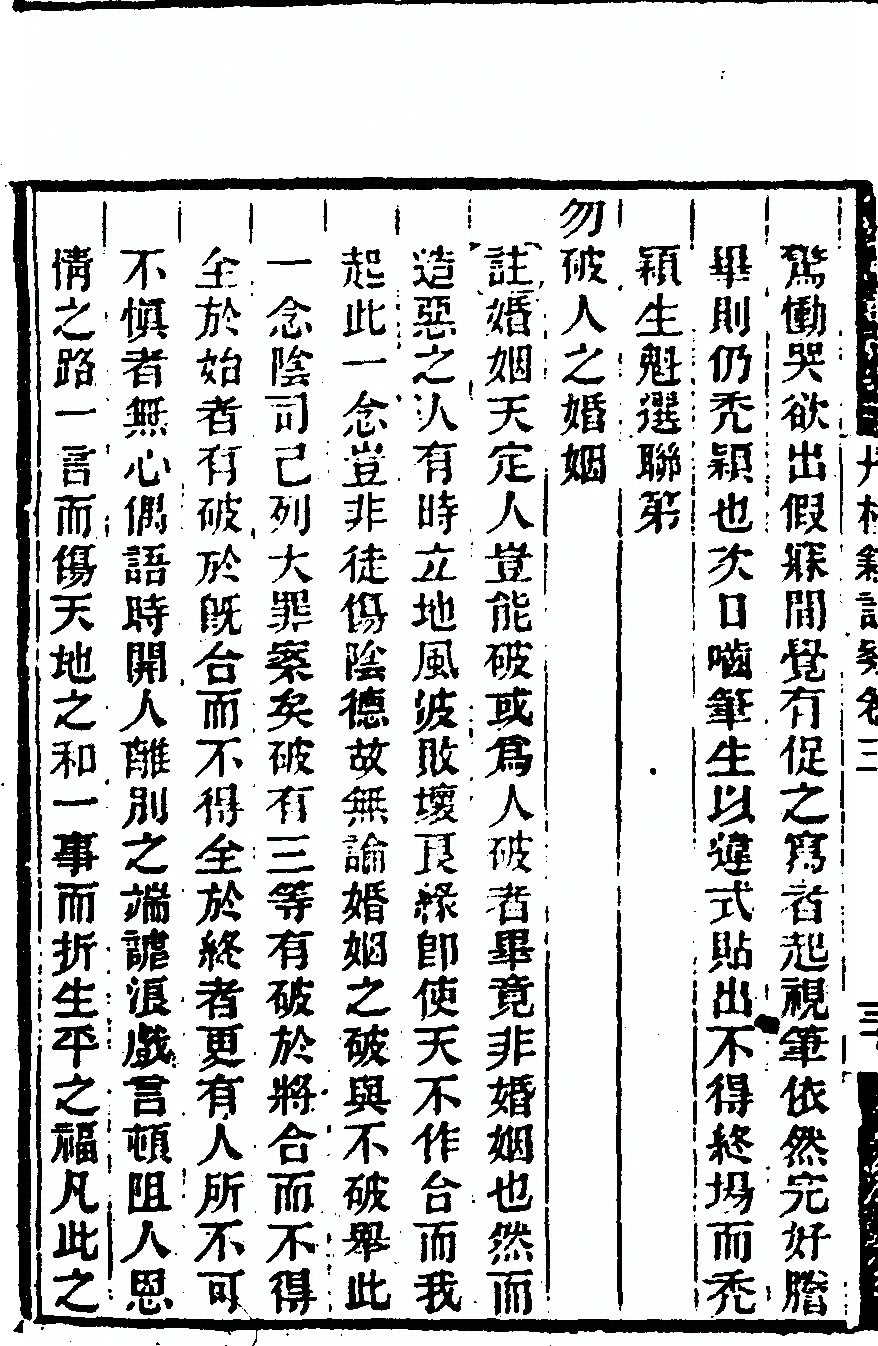 驚慟哭欲出假寐間覺有促之寫者起視筆依然完好謄
畢則仍禿穎也次日嚙筆生以違式貼出不得終塲而禿
穎生魁選聯第
勿破人之婚姻
註婚姻天定人豈能破或爲人破者畢竟非婚姻也然而
造惡之人有時立地風波敗壞良緣卽使天不作合而我
起此一念豈非徒傷陰德故無論婚姻之破與不破舉此
一念陰司已列大罪案矣破有三等有破於將合而不得
全於始者有破於既合而不得全於終者更有人所不可
不愼者無心偶語時開人離別之端謔浪戲言頓阻人恩
情之路一言而傷天地之和一事而折生平之福凡此之